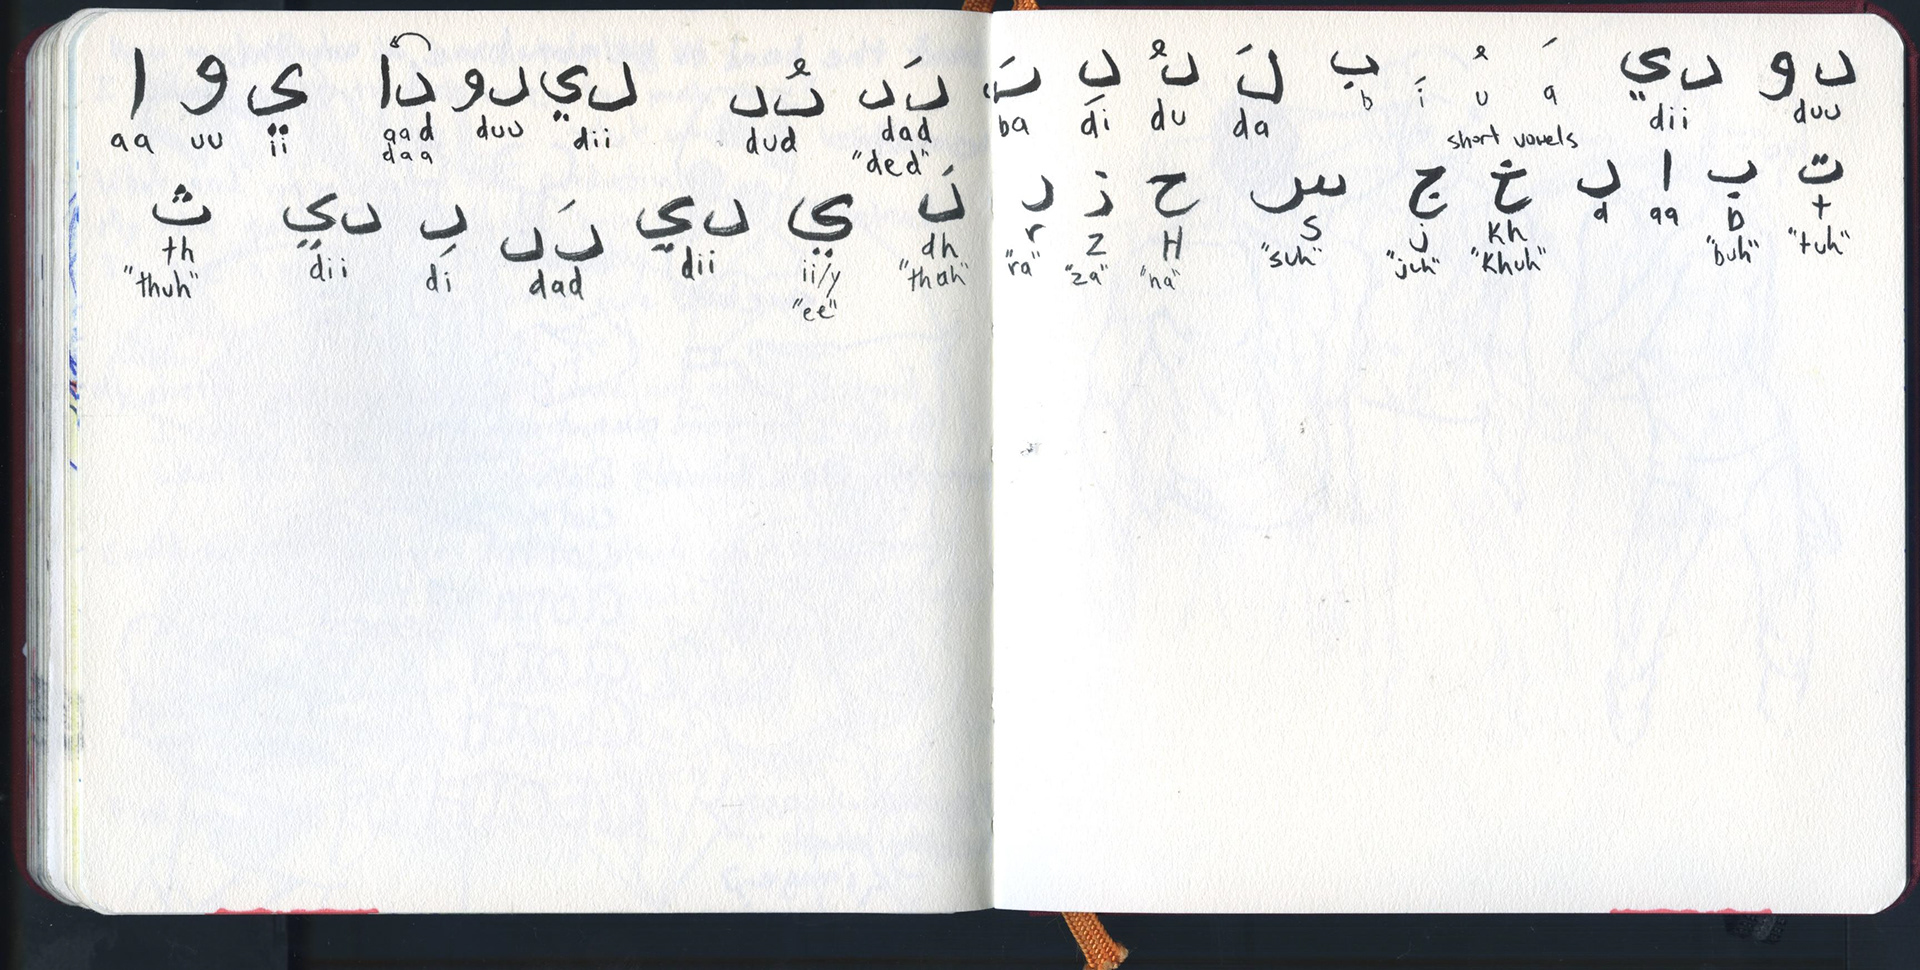 ا و ي دا دو دي دُد دَد
aa uu ii aad duu dii dud dad
daa "ded"
ث دي دِ دَد دي ي ذَ
th dii di dad dii ii/y dh
"thuh" "ee" "thah"
بَ دِ دُ دَ ب ِ ُ َ دي دو
ba di du da b i u a dii duu
short vowels
ر ز ح س ج خ د ا ب ت
r z H s j kh d aa b t
"ra" "za" "ha" "suh" "juh" "khuh" "buh" "tuh"